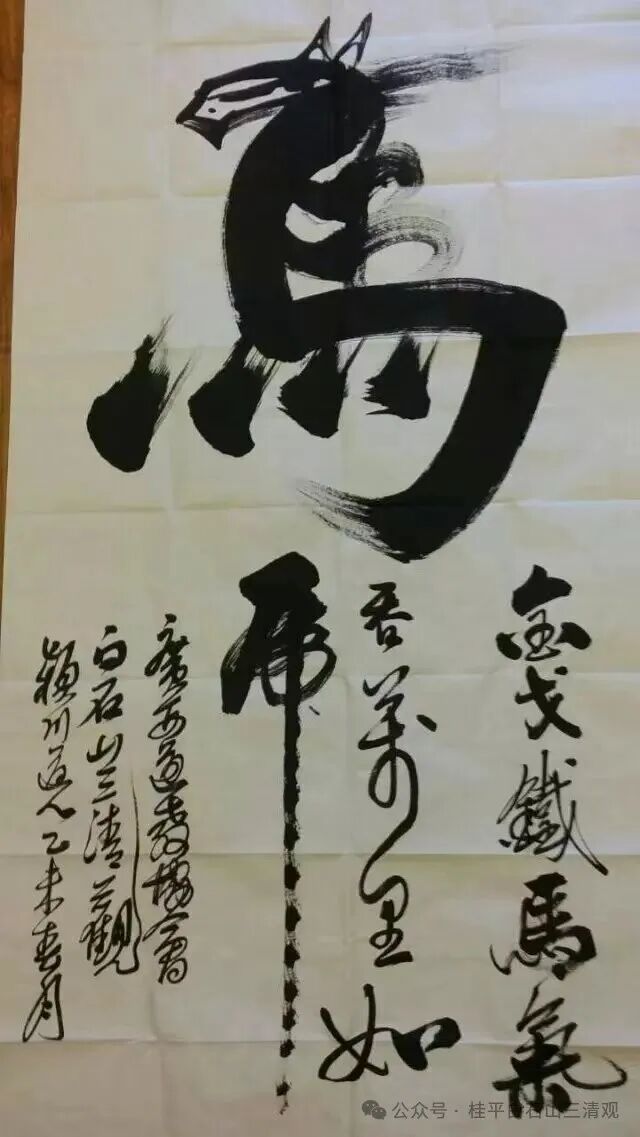 馬
金戈鐵馬氣
吞萬里如
虎
廣西道教協會
白石山三清觀
潁川道人乙未春月
公众号·桂平白石山三清观